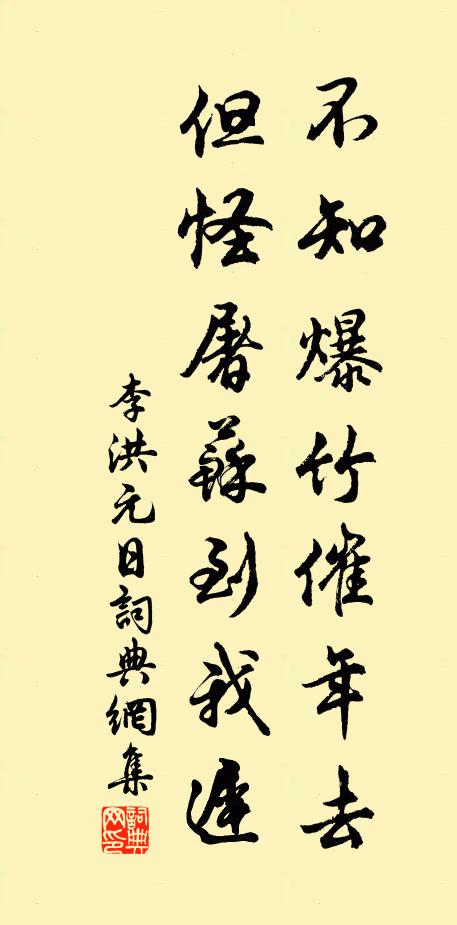 不知爆竹催年去
但怪屠蘇到我遲
李洪元日詞典網集
詞典網印